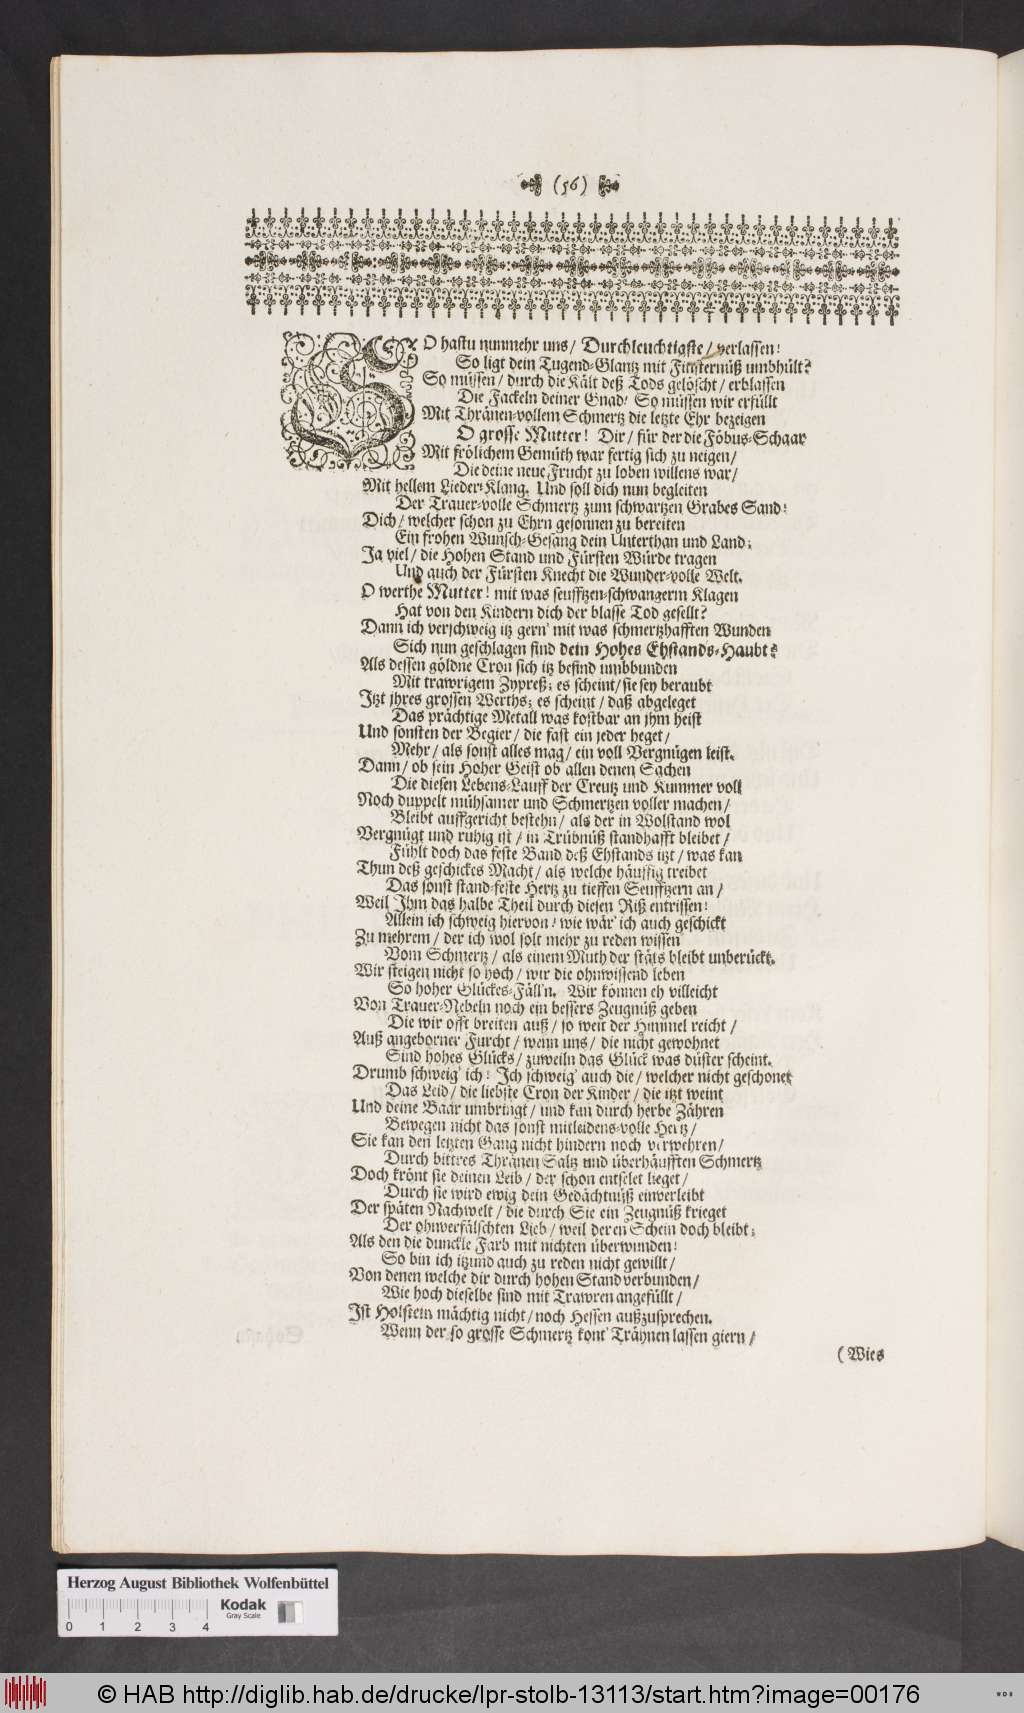 (56)
SO hastu nunmehr uns / Durchleuchtigste / verlassen!
So ligt dein Tugend-Glantz mit Finsternüß umbhült?
So müssen / durch die Kält deß Tods gelöscht / erblassen
Die Fackeln deiner Gnad! So müssen wir erfüllt
Mit Thränen-vollem Schmertz die letzte Ehr bezeigen
O grosse Mutter! Dir / für der die Föbus-Schaar
Mit frölichem Gemüth war fertig sich zu neigen /
Die deine neue Frucht zu loben willens war /
Mit hellem Lieder-Klang. Und soll dich nun begleiten
Der Trauer-volle Schmertz zum schwartzen Grabes Sand!
Dich / welcher schon zu Ehrn gesonnen zu bereiten
Ein frohen Wunsch-Gesang dein Unterthan und Land;
Ja viel / die Hohen Stand und Fürsten Würde tragen
Und auch der Fürsten Knecht die Wunder-volle Welt.
O werthe Mutter! mit was seufftzen-schwangerm Klagen
Hat von den Kindern dich der blasse Tod gesellt?
Dann ich verschweig itz gern' mit was schmertzhafften Wunden
Sich nun geschlagen find dein Hohes Ehstands-Haubt?
Als dessen göldne Cron sich itz befind umbbunden
Mit trawrigem Zypreß; es scheint / sie sey beraubt
Itzt jhres grossen Werths; es scheint / daß abgeleget
Das prächtige Metall was kostbar an jhm heist
Und sonsten der Begier / die fast ein jeder heget /
Mehr / als sonst alles mag / ein voll Vergnügen leist.
Dann / ob sein Hoher Geist ob allen denen Sachen
Die diesen Lebens-Lauff der Creutz und Kummer voll
Noch duppelt mühsamer und Schmertzen voller machen /
Bleibt auffgericht bestehn / als der in Wolstand wol
Vergnügt und ruhig ist / in Trübnüß standhafft bleibet /
Fühlt doch das feste Band deß Ehstands itzt / was kan
Thun deß geschickes Macht / als welche häuffig treibet
Das sonst stand-feste Hertz zu tieffen Seufftzern an /
Weil Jhm das halbe Theil durch diesen Riß entrissen!
Allein ich schweig hiervon! wie wär' ich auch geschickt
Zu mehrem / der ich wol solt mehr zu reden wissen
Vom Schmertz / als einem Muth der stäts bleibt unberückt.
Wir steigen nicht so hoch / wir die ohnwissend leben
So hoher Glückes-Fäll'n. Wir können eh villeicht
Von Trauer-Nebeln noch ein bessers Zeugnüß geben
Die wir offt breiten auß / so weit der Himmel reicht /
Auß angeborner Furcht / wenn uns / die nicht gewohnet
Sind hohes Glücks / zuweiln das Glück was düster scheint.
Drumb schweig' ich! Jch schweig' auch die / welcher nicht geschonet
Das Leid / die liebste Cron der Kinder / die itzt weint
Und deine Baar umbringt / und kan durch herbe Zähren
Bewegen nicht das sonst mitleidens-volle Hertz /
Sie kan den letzten Gang nicht hindern noch verwehren /
Durch bittres Thränen Saltz und überhäufften Schmertz
Doch krönt sie deinen Leib / der schon entselet lieget /
Durch sie wird ewig dein Gedächtnüß einverleibt
Der späten Nachwelt / die durch Sie ein Zeugnüß krieget
Der ohnverfälschten Lieb / weil deren Schein doch bleibt;
Als den die dunckle Farb mit nichten überwunden!
So bin ich itzund auch zu reden nicht gewillt /
Von denen welche dir durch hohen Stand verbunden /
Wie hoch dieselbe sind mit Trawren angefüllt /
Ist Holstein mächtig nicht / noch Hessen außzusprechen.
Wenn der so grosse Schmertz kont' Trähnen lassen giern /
(Wies
Herzog August Bibliothek Wolfenbüttel
0 1 2 3 4 Kodak
Gray Scale
© HAB http://diglib.hab.de/drucke/lpr-stolb-13113/start.htm?image=00176